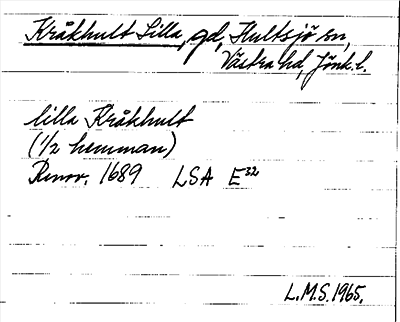 Kråkhult Lilla, gd, Hultsjö sn,
Västra hd, Jönk. l.
lilla Kråkhult
(1/2 hemman)
Renov. 1689 LSA E³²
L.M.S. 1965.